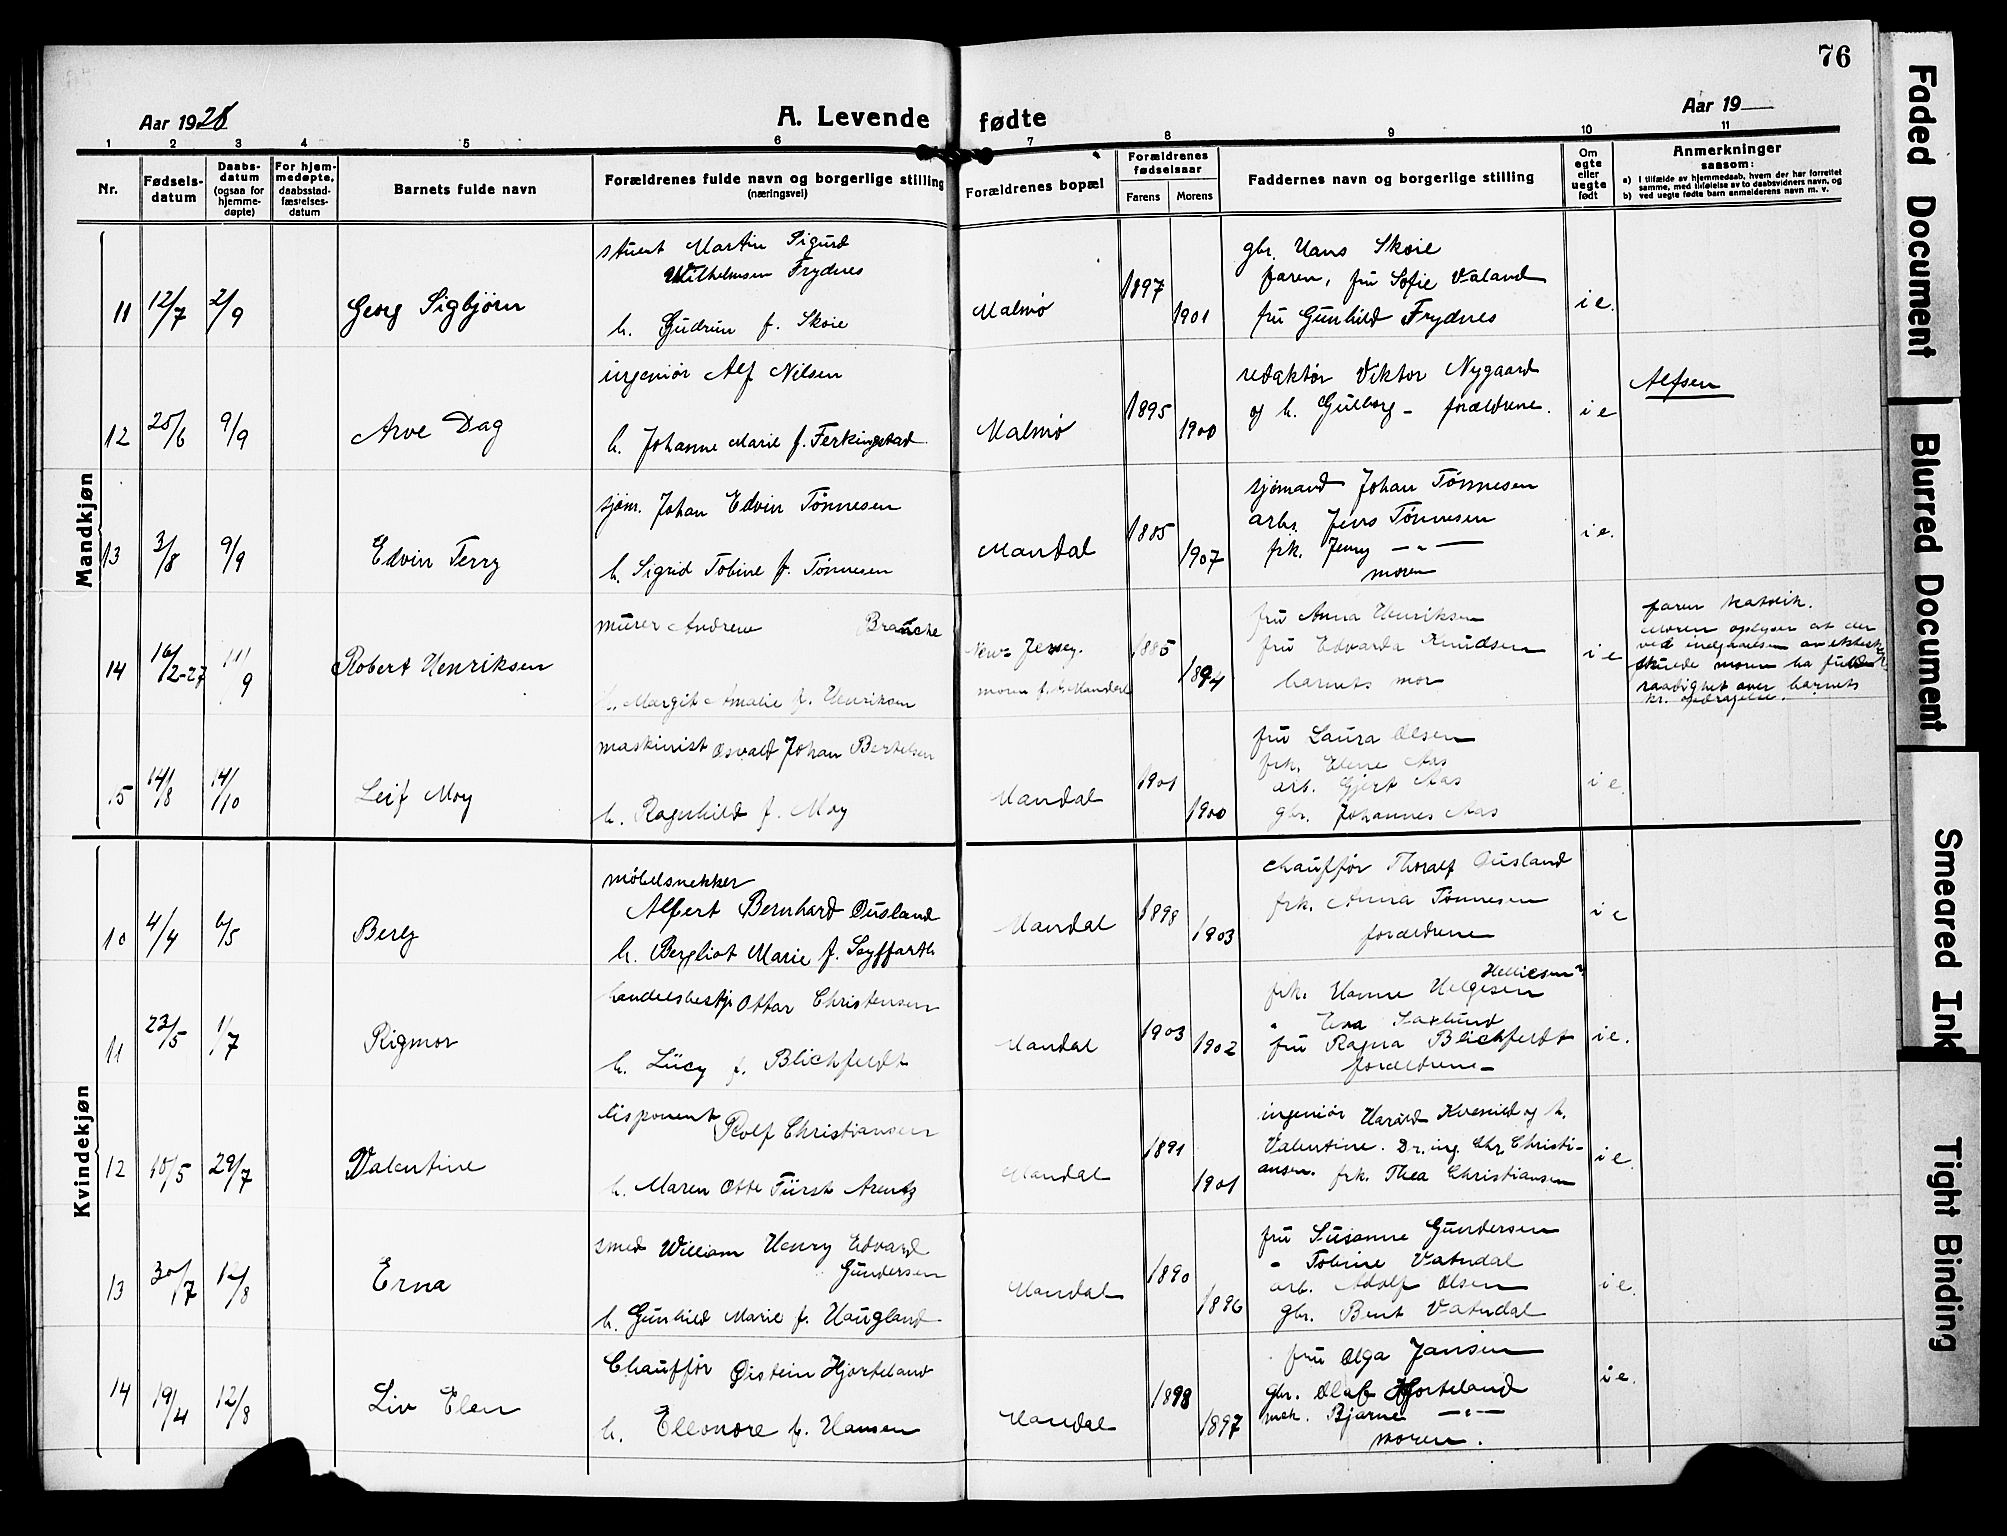 76
Aar 1928
A. Levende fødte
Aar 19
1 2 3 4 5 6 7 8 9 10 11
Nr.
Fødselsdatum
Daabsdatum (ogsaa for hjemmedøpte)
For hjemmedøpte, daabsstadfæstelsesdatum
Barnets fulde navn
Forældrenes fulde navn og borgerlige stilling
(næringsvei)
Forældrenes bopæl
Forældrenes fødselsaar
Farens Morens
Faddernes navn og borgerlige stilling
Om egte eller uegte født
Anmerkninger
saasom:
a) I tilfælde av hjemmedaab, hvem der har forrettet samme, med tilføielse av to daabsvidners navn, og
b) ved uegte fødte barn anmelderens navn m. v.
Mandkjøn
11 12/7 2/9 Georg Sigbjørn
Martin Sigurd
Wilhelmsen Frydnes
h. Gudrun f. Skoie
Malmø 1897 1901
gbr. Hans Skoie
faren, fru Sofie Valand
fru Gunhild Frydnes
i e.
12 25/6 9/9 Arve Dag
ingeniør Alf Nilsen
h. Johanne Marie f. Ferkingstad
Malmø 1895 1900
redaktør Viktor Nygaard
og h. Gulborg - forældrene.
i e
Alfsen
13 3/8 9/9 Edvin Terry
sjøm. Johan Edvin Tønnesen
h. Sigrid Tobine f. Tønnesen
Mandal 1885 1907
sjømand Johan Tønnesen
arb. Jens Tønnesen
frk. Jenny — " —
moren
i e.
14 16/2-27 11/9 Robert Henriksen
murer Andrew Branche
h. Margit Amalie f. Henriksen
New-Jersey.
moren f. t. Mandal
1885 1894
fru Anna Henriksen
fru Edvarda Knudsen
barnets mor
i e
faren katolik.
Moren oplyser at der
ved indgaaelsen av ekteskap
skulde moren ha fulde
raadighet over barnets
kr. opdragelse.
15 14/8 14/10 Leif Moy
maskinist Osvald Johan Bertelsen
h. Ragnhild f. Moy
Mandal 1901 1900
fru Laura Olsen
frk. Elene Aas
arb. Gjert Aas
gbr. Johannes Aas
i e.
Kvindekjøn
10 4/4 6/5 Berly
møbelsnekker
Alfert Bernhard Ousland
h. Bergliot Marie f. Seyffarth
Mandal 1898 1903
chauffør Thoralf Ousland
frk. Anna Tønnesen
forældrene
i e
11 23/5 1/7 Rigmor
handelsbestyr Ottar Christensen
h. Lücy f. Blichfeldt
Mandal 1903 1902
Helliesen?
frk. Hanne Helgesen
" Eva Saxlund
fru Ragna Blichfeldt
forældrene -
i e.
12 10/5 29/7 Valentine
disponent Rolf Christiansen
h. Maren Otte Fürst Arentz
Mandal 1891 1901
ingeniør Harald Kvernild og h.
Valentine. Dr. ing. Chr. Christi-
ansen. frk. Thea Christiansen
i e.
13 30/7 12/8 Erna
smed William Henry Edvard
Gundersen
h. Gunhild Marie f. Haugland
Mandal 1890 1896
fru Susanne Gundersen
- Tobine Vatndal
arb. Adolf Olsen
gbr. Bent Vatndal
i e.
14 19/4 12/8 Liv Elen
Chauffør Øistein Hjorteland
h. Elleonore f. Hansen
Mandal 1898 1897
fru Olga Jansen
gbr. Olaf Hjorteland
mek. Bjarne — " —
moren.
i e.
Faded Document
Blurred Document
Smeared Ink
Tight Binding